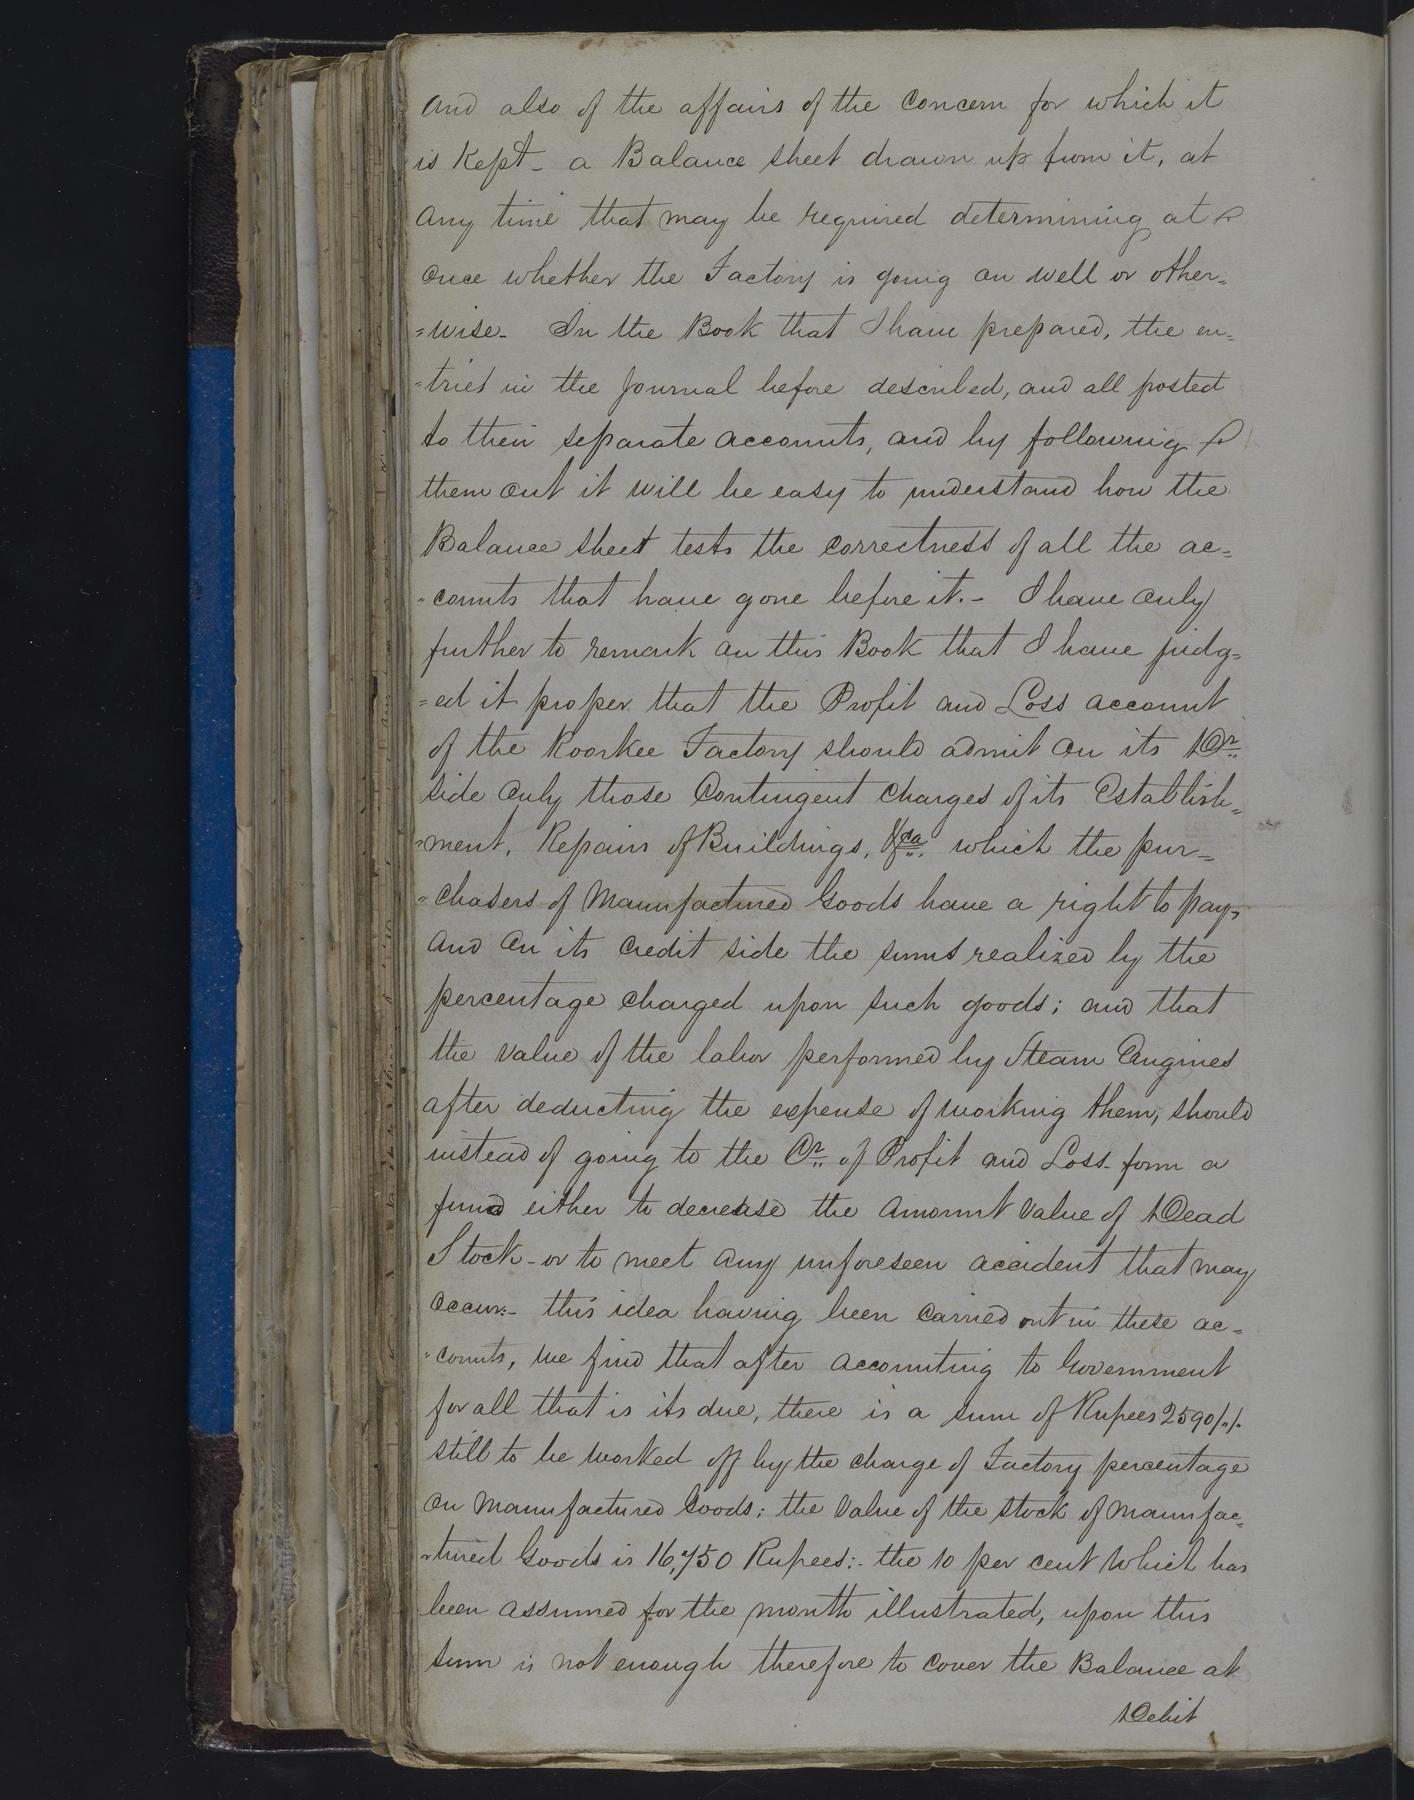 and also of the affairs of the concern for which it
is kept - a Balance sheet drawn up from it, at
any time that may be required determining at
once whether the Factory is going on well or other=
=wise - In the Book that I have prepared, the en=
=tries in the Journal before described, and all posted
to their separate accounts, and by following
them out it will be easy to understand how the
Balance sheet tests the correctness of all the ac=
=counts that have gone before it. - I have only
further to remark on this Book that I have judg=
=ed it proper that the Profit and Loss account
of the Roorkee Factory should admit on its Dr.
side only those Contingent charges of its Establish=
=ment, Repairs of Buildings, &ca. which the pur=
=chasers of Manufactured Goods have a right to pay,
and on its credit side the sums realized by the
percentage charged upon such goods; and that
the value of the labor performed by Steam Engines
after deducting the expense of working them, should
instead of going to the Cr. of Profit and Loss form a
fund either to decrease the amount value of Dead
Stock - or to meet any unforeseen accident that may
occur:- this idea having been carried out in these ac=
=counts, we find that after accounting to Government
for all that is its due, there is a sum of Rupees 2590/"/.
still to be worked off by the charge of Factory percentage
on manufactured Goods; the value of the stock of manufac=
=tured Goods is 16,750 Rupees:- the 10 per cent which has
been assumed for the month illustrated, upon this
sum is not enough therefore to cover the Balance at
Debit